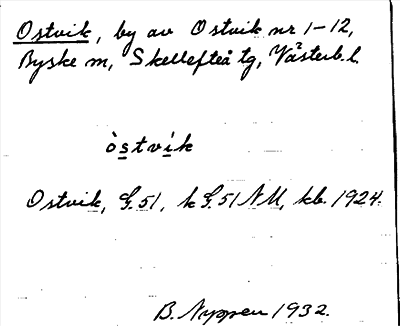 Ostvik, by av Ostvik nr 1–12,
Byske m, Skellefteå tg, Västerb. l.
òstvík
Ostvik, G. 51, k G. 51 NM, kb. 1924.
B. 1932.